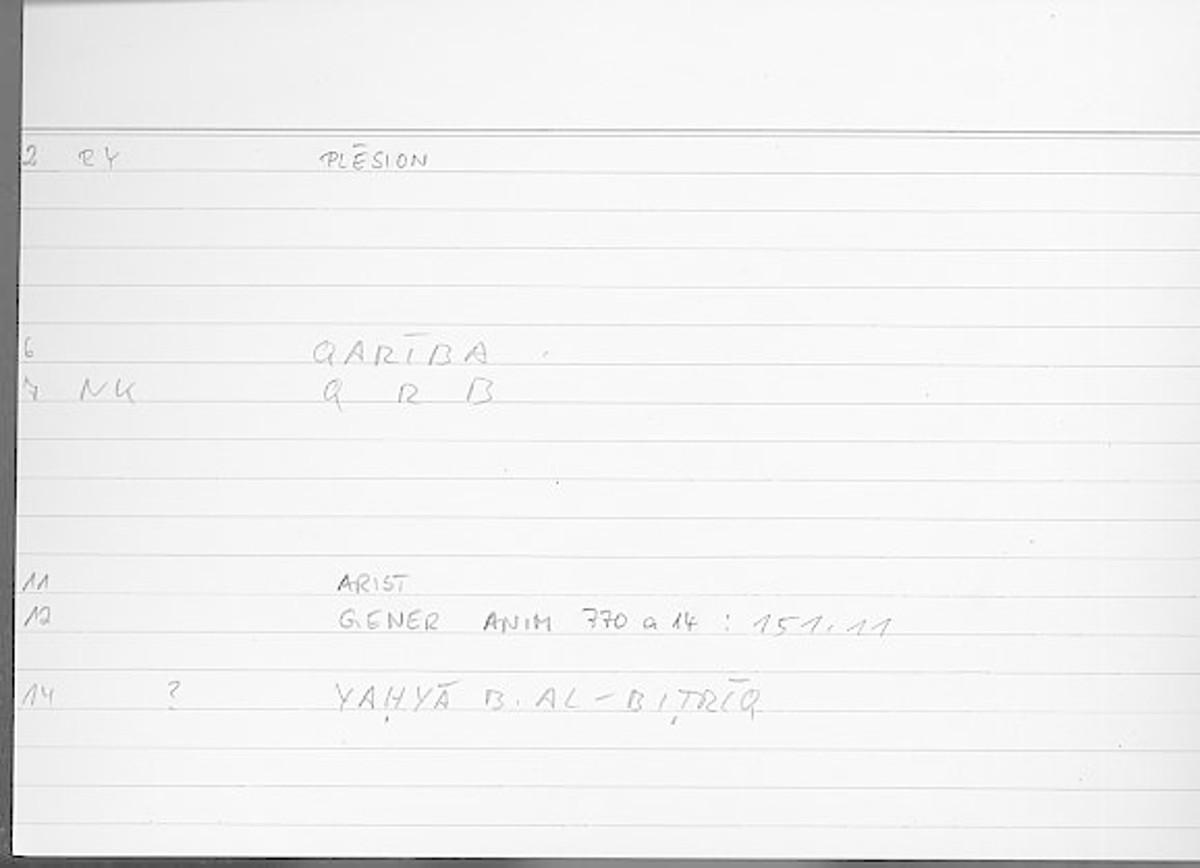 2 RY PLĒSION
6 QARĪBA
7 NK Q R B
11 ARIST
12 GENER ANIM 770 a 14 : 151.11
14 ? YAḤYĀ B. AL-BIṬRĪQ